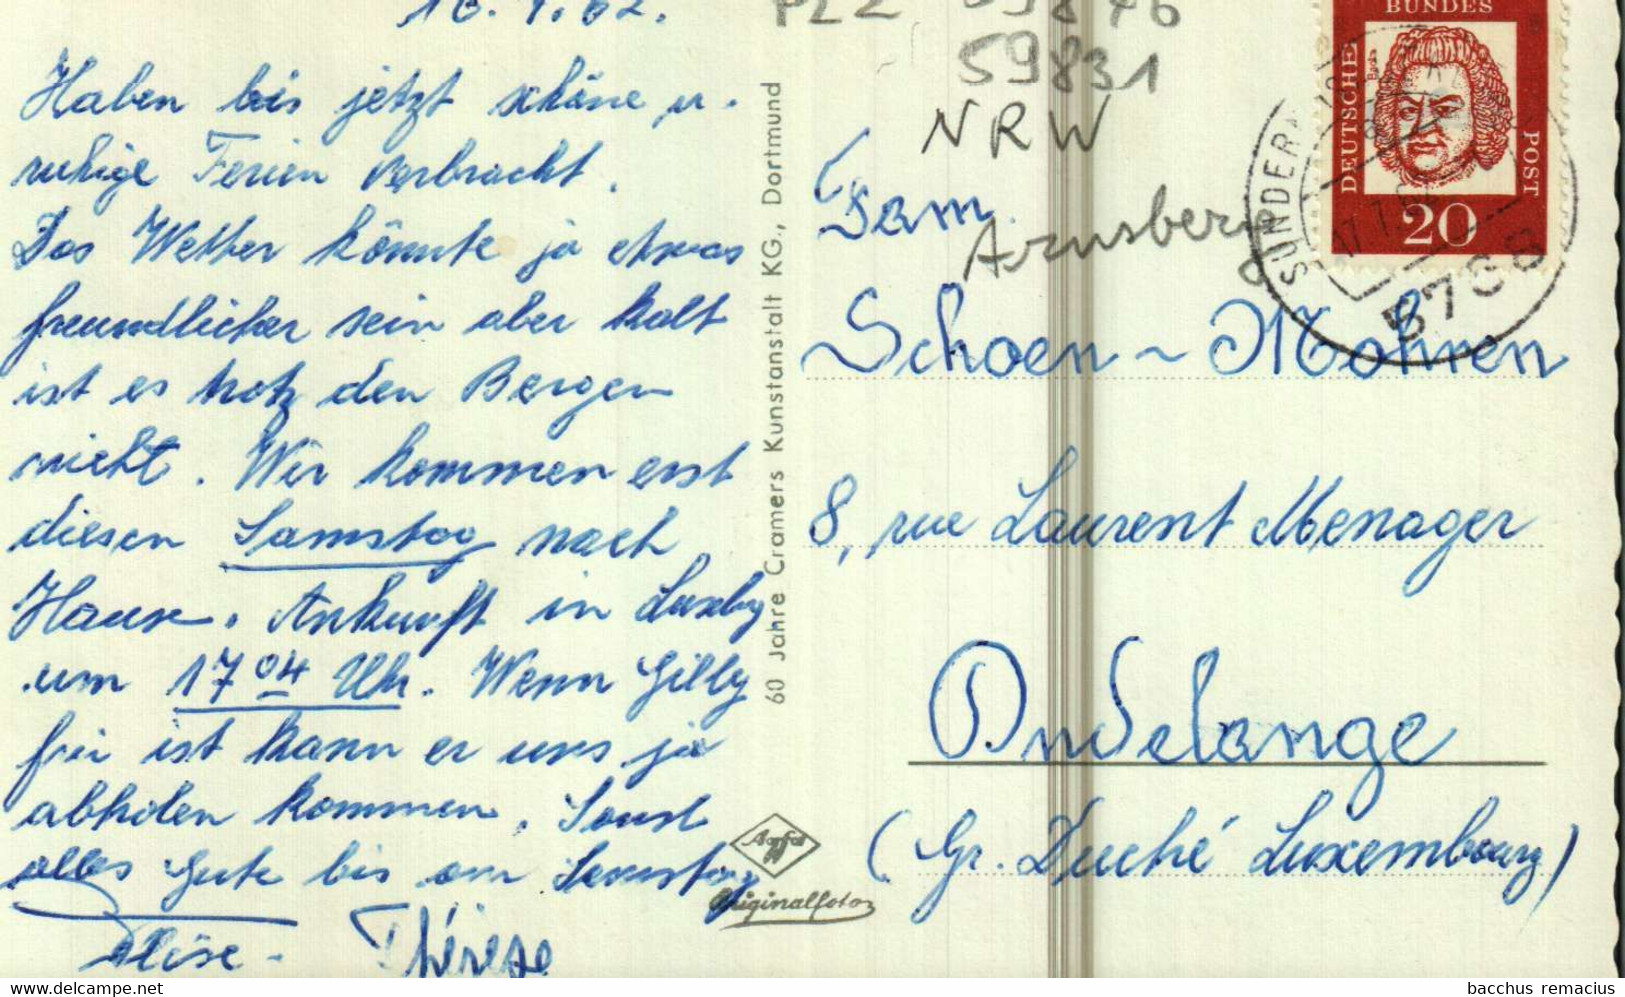 16.7.62.
Haben bis jetzt schöne u.
ruhige Ferien verbracht.
Das Wetter könnte ja etwas
freundlicher sein aber kalt
ist es trotz den Bergen
nicht. Wir kommen erst
diesen Samstag nach
Hause. Ankunft in Luxbg
um 17 04 Uhr. Wenn Gilly
frei ist kann er uns ja
abholen kommen. Sonst
alles Gute bis am Samstag
Thérèse
60 Jahre Cramers Kunstanstalt KG., Dortmund
Agfa
Originalfoto
PLZ 59846
59831
NRW
Arnsberg
BUNDES
DEUTSCHE
POST
Bach
20
SUNDERN
Fam.
Schoen - Mohren
8, rue Laurent Menager
Dudelange
(Gr. Duché Luxembourg)
bacchus remacius
www.delcampe.net